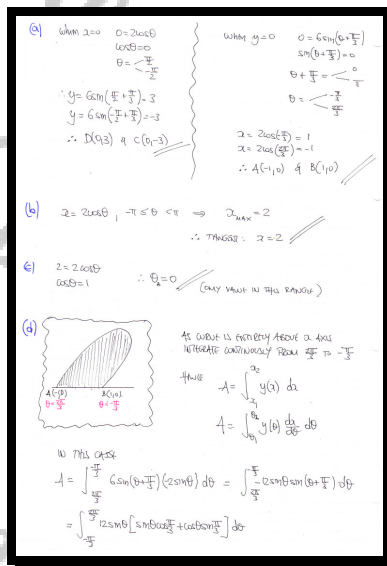 (a) when x=0 0=2cosθ
cosθ=0
θ = < π/2
-π/2
∴ y=6sin(π/2+π/3)=3
y=6sin(-π/2+π/3)=-3
∴ D(0,3) & C(0,-3)
when y=0 0=6sin(θ+π/3)
sin(θ+π/3)=0
θ+π/3 = < 0
π
θ = < -π/3
2π/3
x=2cos(-π/3)=1
x=2cos(2π/3)=-1
∴ A(-1,0) & B(1,0)
(b) x=2cosθ, -π≤θ<π ⇒ xMAX=2
∴ TANGENT: x=2
(c) 2=2cosθ
cosθ=1
∴ θ=0 (ONLY VALUE IN THIS RANGE)
(d)
A(-1,0) B(1,0)
θ=2π/3 θ=-π/3
AS CURVE IS ENTIRELY ABOVE x AXIS
INTEGRATE CONTINUOUSLY FROM 2π/3 TO -π/3
HENCE
A = ∫x₁^x₂ y(x) dx
A = ∫θ₁^θ₂ y(θ) dx/dθ dθ
IN THIS CASE
A = ∫2π/3^-π/3 6sin(θ+π/3)(-2sinθ) dθ = ∫ -12sinθsin(θ+π/3) dθ
= ∫-π/3^2π/3 12sinθ[sinθcosπ/3+cosθsinπ/3] dθ